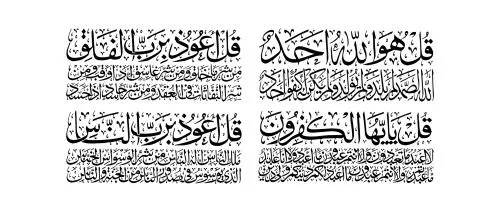 قل هو الله احد
الله الصمد لم يلد ولم يولد ولم يكن له كفوا احد
قل اعوذ برب الفلق
من شر ما خلق ومن شر غاسق اذا وقب ومن
شر النفاثات في العقد ومن شر حاسد اذا حسد
قل يايها الكفرون
لا اعبد ما تعبدون ولا انتم عبدون ما اعبد ولا انا عابد
ما عبدتم ولا انتم عبدون ما اعبد لكم دينكم ولي دين
قل اعوذ برب الناس
ملك الناس اله الناس من شر الوسواس الخناس
الذي يوسوس في صدور الناس من الجنة والناس